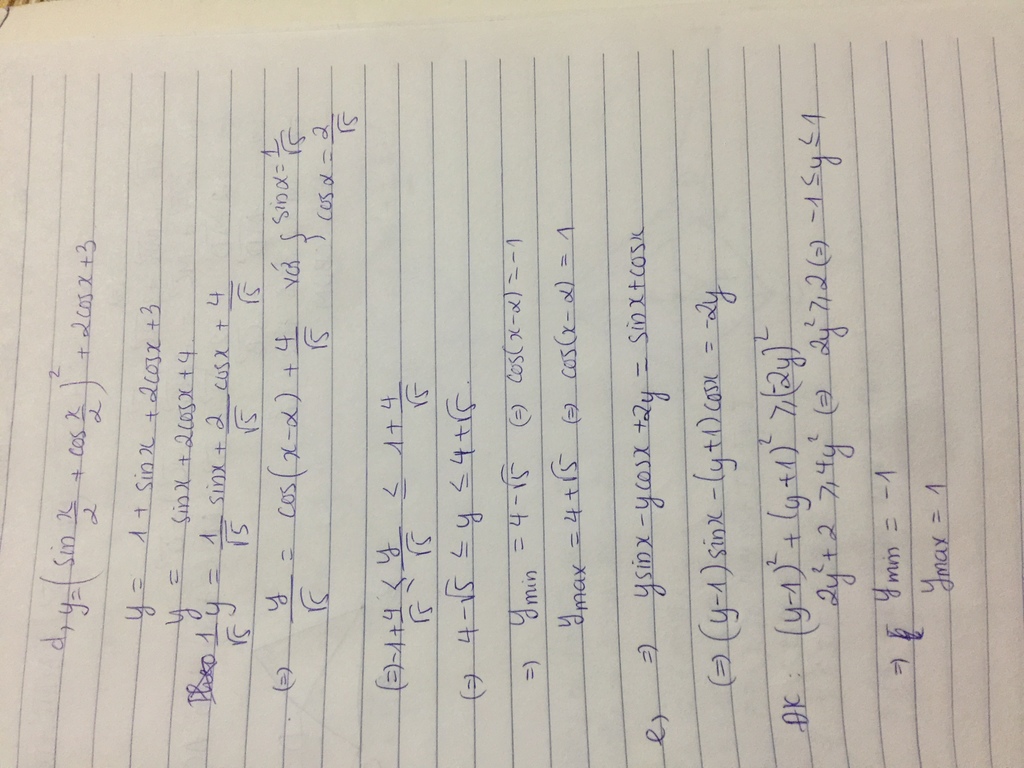 d, y = (sin x/2 + cos x/2)² + 2cosx + 3
y = 1 + sinx + 2cosx + 3
y = sinx + 2cosx + 4
1/√5 y = 1/√5 sinx + 2/√5 cosx + 4/√5
(=) y/√5 = cos(x-α) + 4/√5 với { sinα = 1/√5
cosα = 2/√5
(=) -1 + 4/√5 ≤ y/√5 ≤ 1 + 4/√5
(=) 4-√5 ≤ y ≤ 4+√5
=) ymin = 4-√5 (=) cos(x-α) = -1
ymax = 4+√5 (=) cos(x-α) = 1
e, =) ysinx - ycosx + 2y = sinx + cosx
(=) (y-1)sinx - (y+1)cosx = -2y
ĐK : (y-1)² + (y+1)² ≥ (2y)²
2y² + 2 ≥ 4y² (=) 2y² ≥ 2 (=) -1 ≤ y ≤ 1
=) ymin = -1
ymax = 1